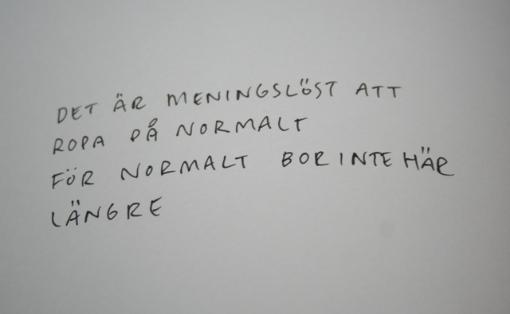 DET ÄR MENINGSLÖST ATT
ROPA PÅ NORMALT
FÖR NORMALT BOR INTE HÄR
LÄNGRE